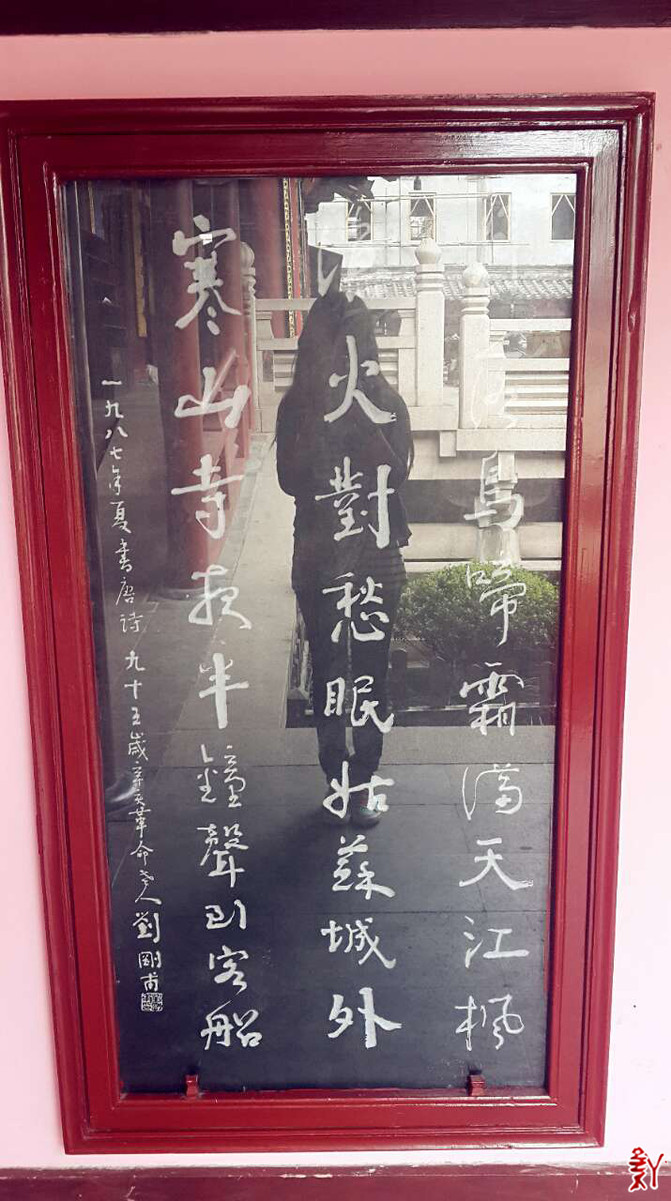 落烏啼霜滿天江楓
火對愁眠姑蘇城外
寒山寺夜半鐘聲到客船
一九八七年夏書唐詩 九十五歲辛亥革命老人劉剛甫